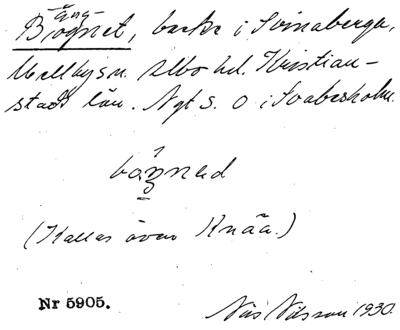 äng-
Brognet, backe i Svinaberga,
Mellbysn. Albo hd. Kristian-
stads län. Ngt s. o i Svabesholm.
(Kallas även Knäa.)
Nr 5905.
Nils Nilsson 1930.